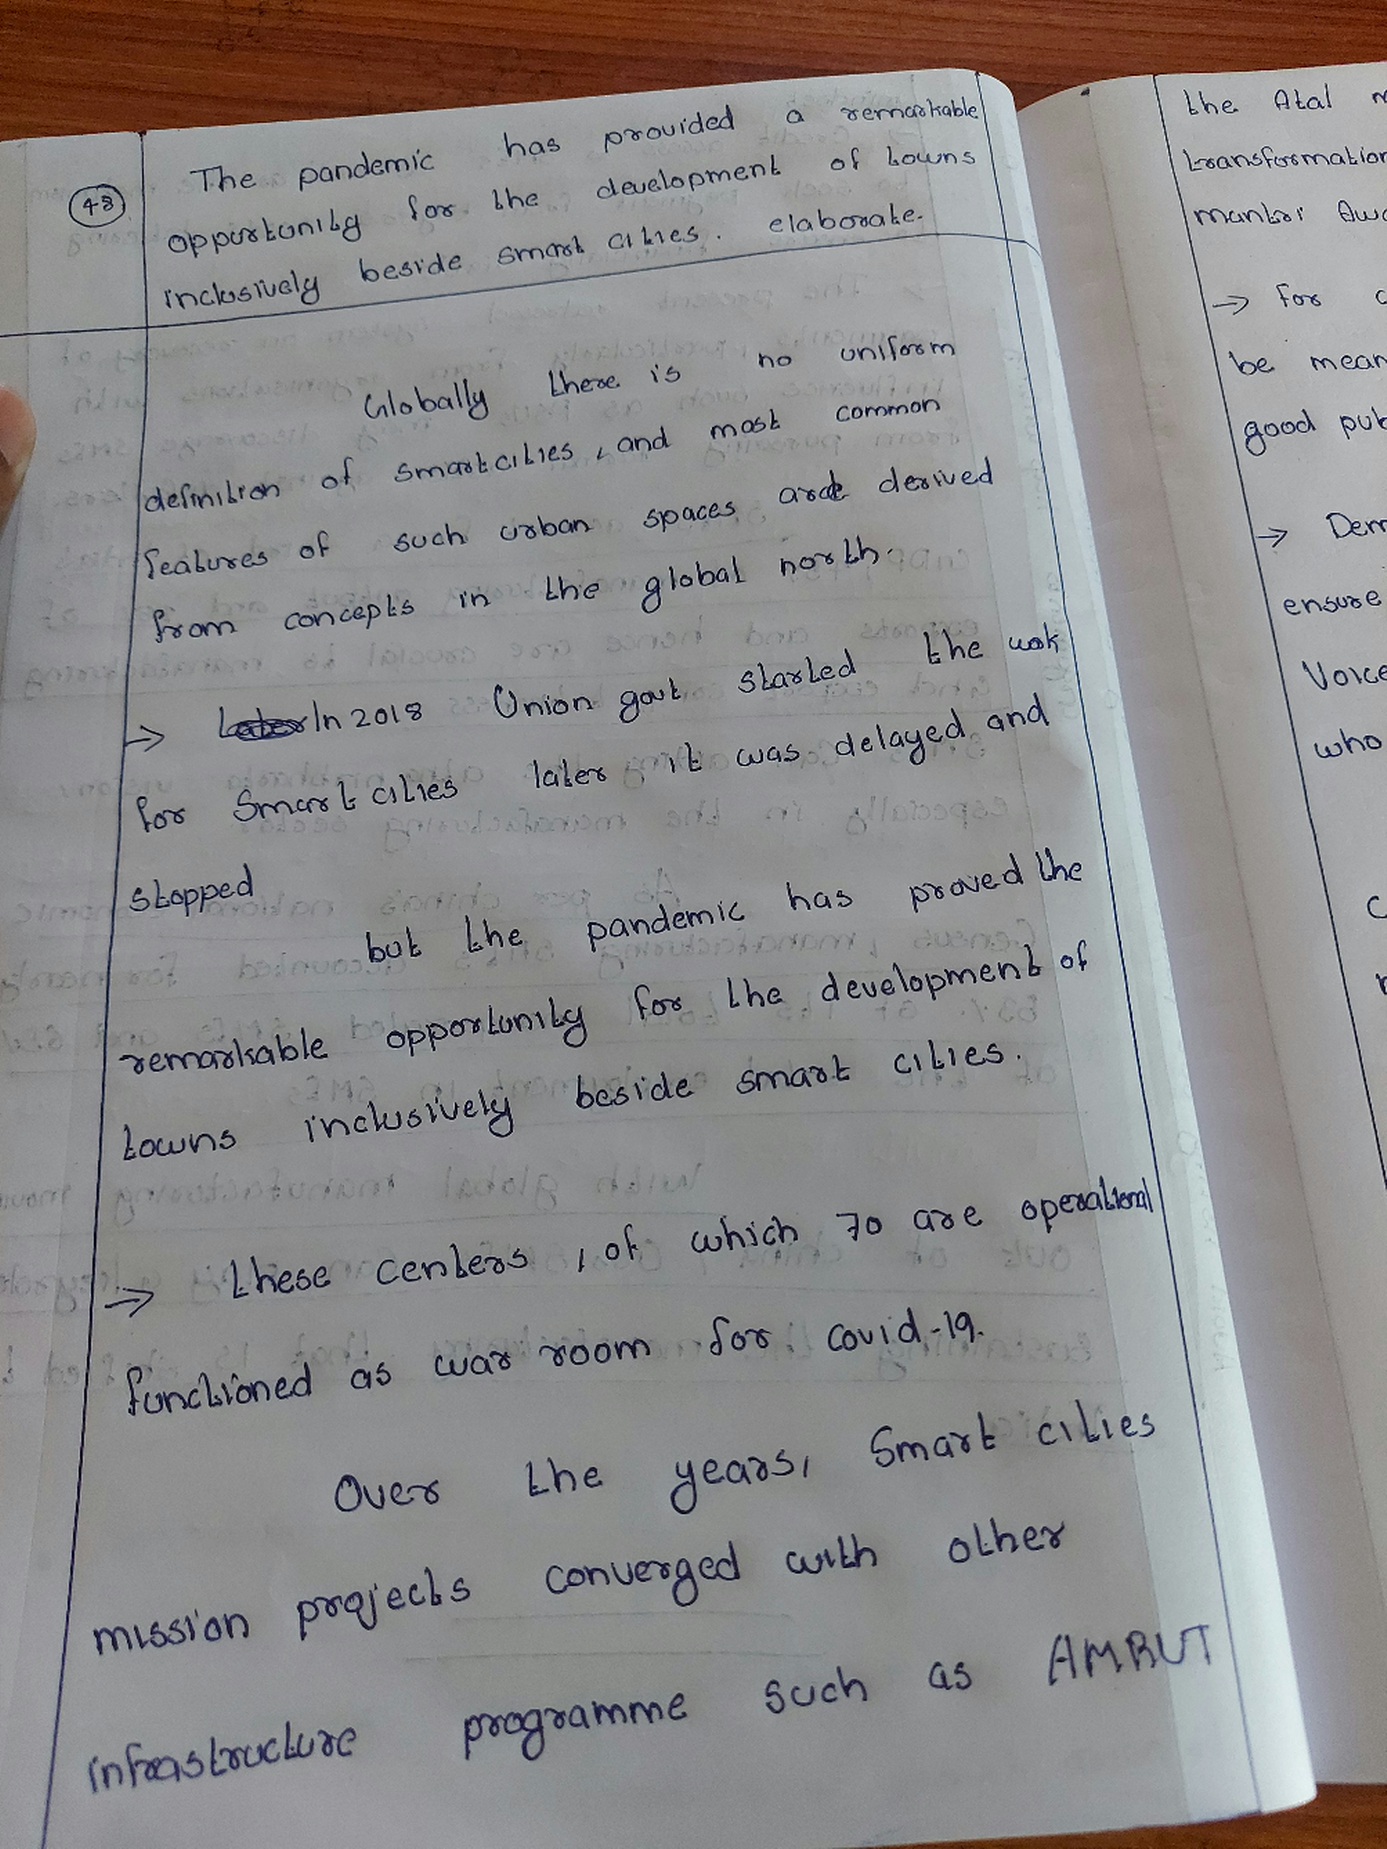 48
The pandemic has provided a remarkable
opportunity for the development of towns
inclusively beside smart cities. elaborate.
Globally there is no uniform
definition of smartcities, and most common
features of such urban spaces are derived
from concepts in the global north.
→ In 2018 Union govt started the wok
for Smart cities later it was delayed and
stopped
but the pandemic has proved the
remarkable opportunity for the development of
towns inclusively beside smart cities.
→ these centers, of which 70 are operational
functioned as war room for covid-19.
Over the years, Smart cities
mission projects converged with other
infrastructure programme such as AMRUT
the Atal
transformation
mantri
→ For
be
good
→
ensure
Voice
who